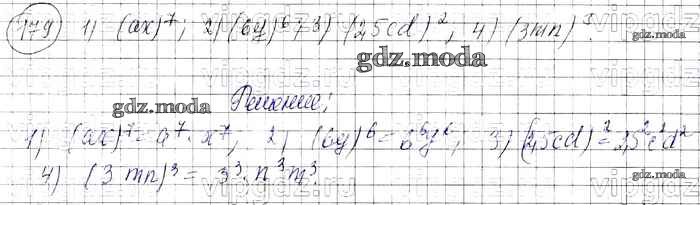 179) 1) (ax)⁷; 2) (6y)⁶; 3) (2,5cd)², 4) (3mn)³
gdz.moda
gdz.moda
gdz.moda Решение:
1) (ax)⁷ = a⁷ · x⁷, 2) (6y)⁶ = 6⁶y⁶, 3) (2,5cd)² = 2,5²c²d²
4) (3 mn)³ = 3³ · n³m³.
gdz.moda
vipgdz.moda